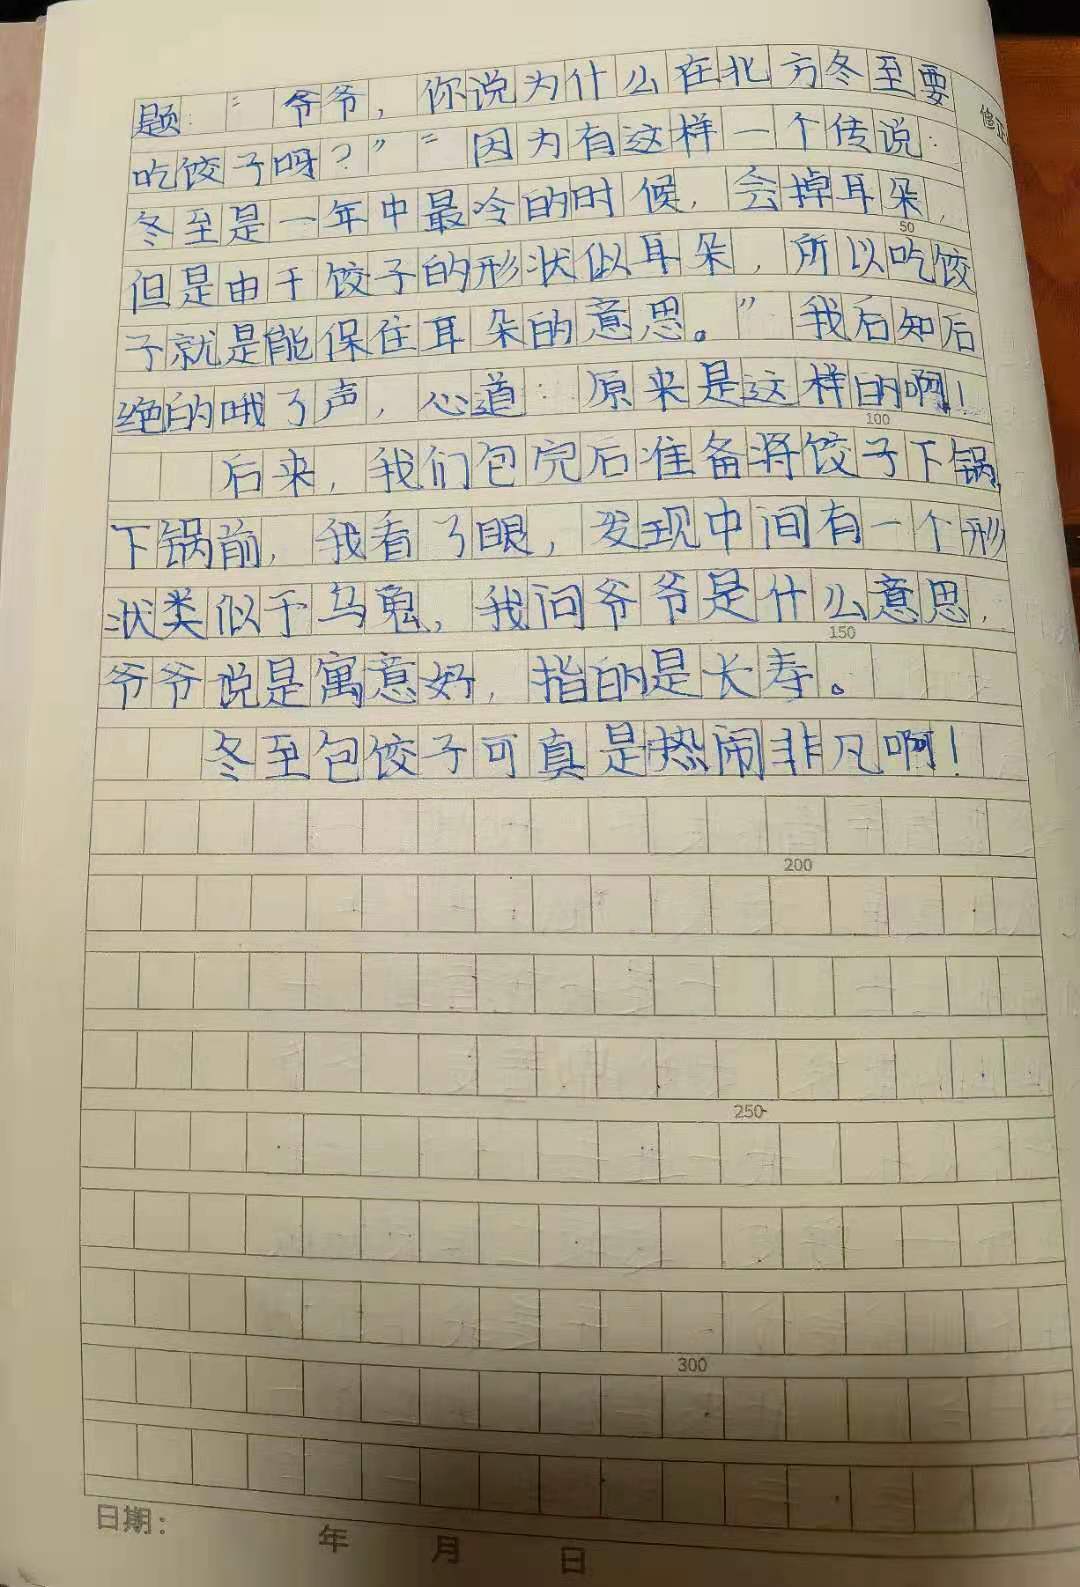 题："爷爷，你说为什么在北方冬至要
修正
吃饺子呀？""因为有这样一个传说：
冬至是一年中最冷的时候，会掉耳朵，
50
但是由于饺子的形状似耳朵，所以吃饺
子就是能保住耳朵的意思。"我后知后
绝的哦了声，心道：原来是这样的啊！
100
后来，我们包完后准备将饺子下锅，
下锅前，我看了眼，发现中间有一个形
状类似于乌龟，我问爷爷是什么意思，
150
爷爷说是寓意好，指的是长寿。
冬至包饺子可真是热闹非凡啊！
200
250
300
日期： 年 月 日